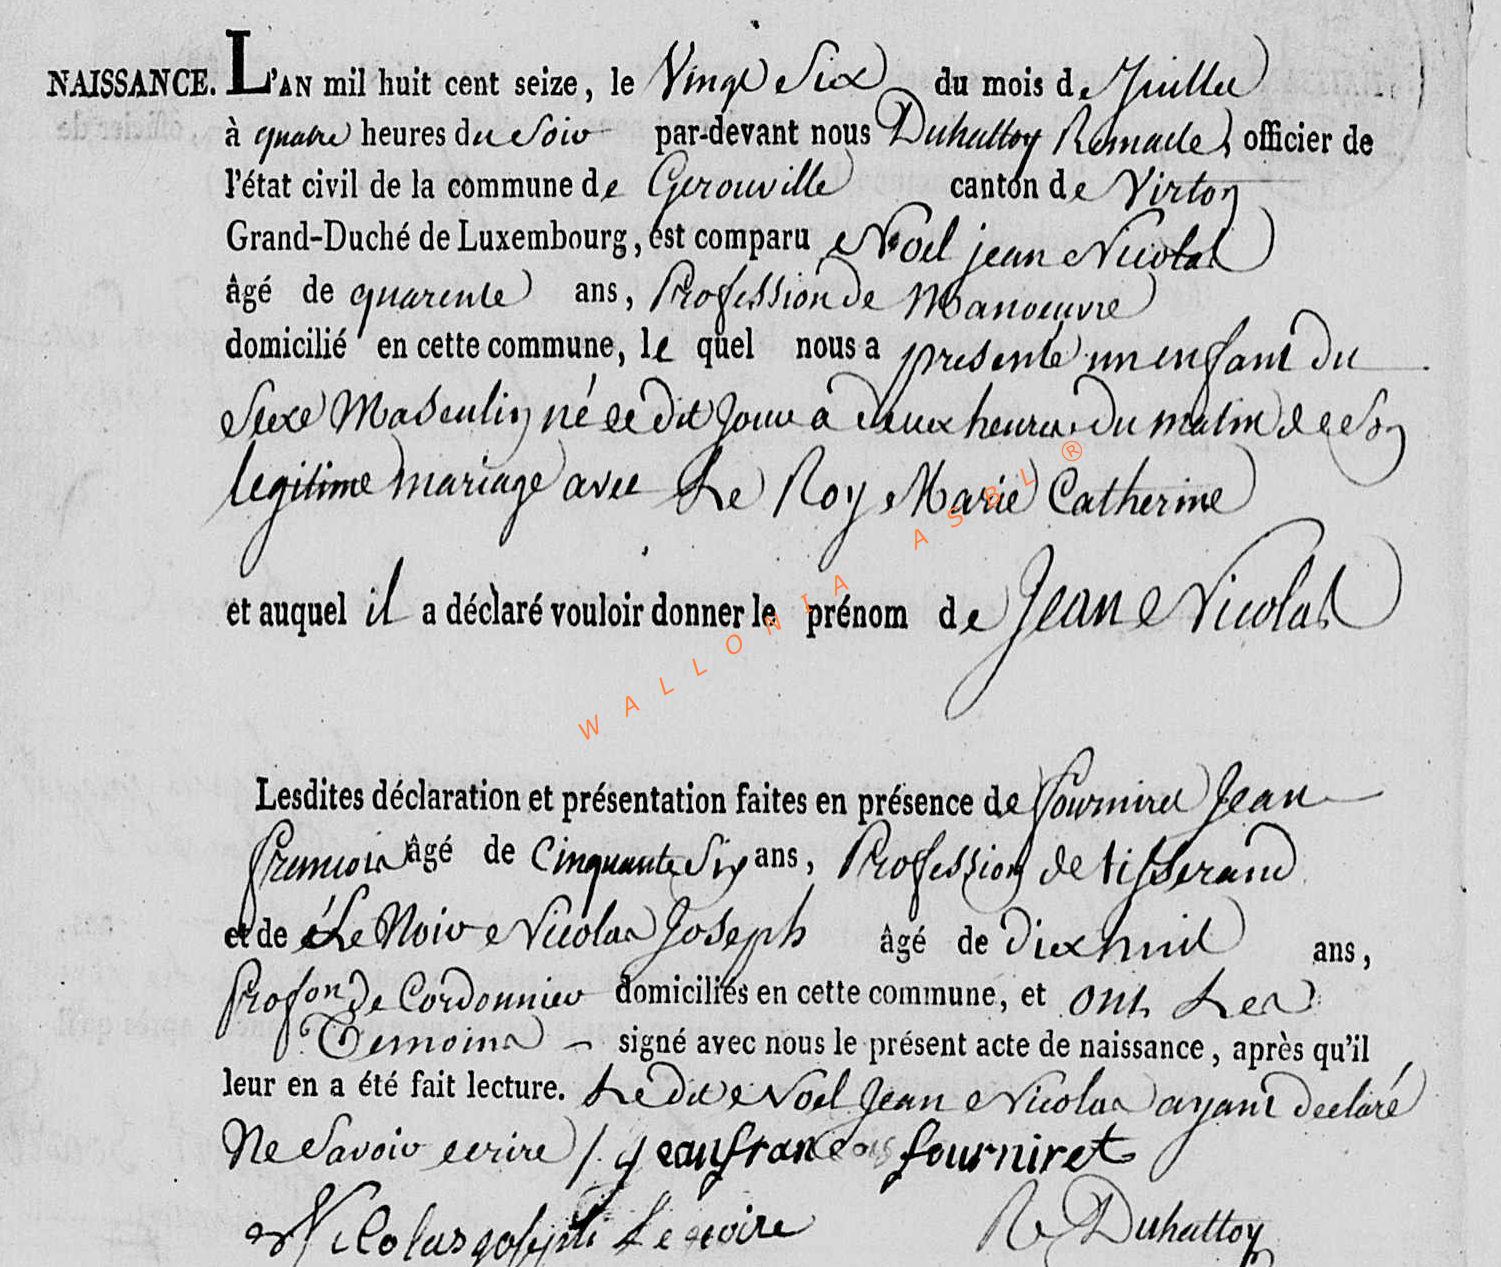 NAISSANCE. L'AN mil huit cent seize, le Vingt Six du mois de Juillet
à quatre heures du Soir par-devant nous Duhattoy Remacle, officier de
l'état civil de la commune de Gerouville canton de Virton
Grand-Duché de Luxembourg, est comparu Noel jean Nicolas
âgé de quarente ans, Profession de Manoeuvre
domicilié en cette commune, le quel nous a presenté un enfant du
Sexe Masculin né ce dit Jour a deux heures du matin de Son
legitime mariage avec Le Roy Marie Catherine
et auquel il a déclaré vouloir donner le prénom de Jean Nicolas
WALLONIA ASBL ®
Lesdites déclaration et présentation faites en présence de Fourniret Jean
francois âgé de Cinquante Six ans, Profession de tisserand
et de Le Noir Nicolas Joseph âgé de dix huit ans,
Profon de Cordonnier domiciliés en cette commune, et ont Les
Temoins signé avec nous le présent acte de naissance, après qu'il
leur en a été fait lecture. Le dit Noel Jean Nicolas ayant declaré
Ne Savoir ecrire /. jeanfrancois fourniret
Nicolas joseph Lenoire R Duhattoy